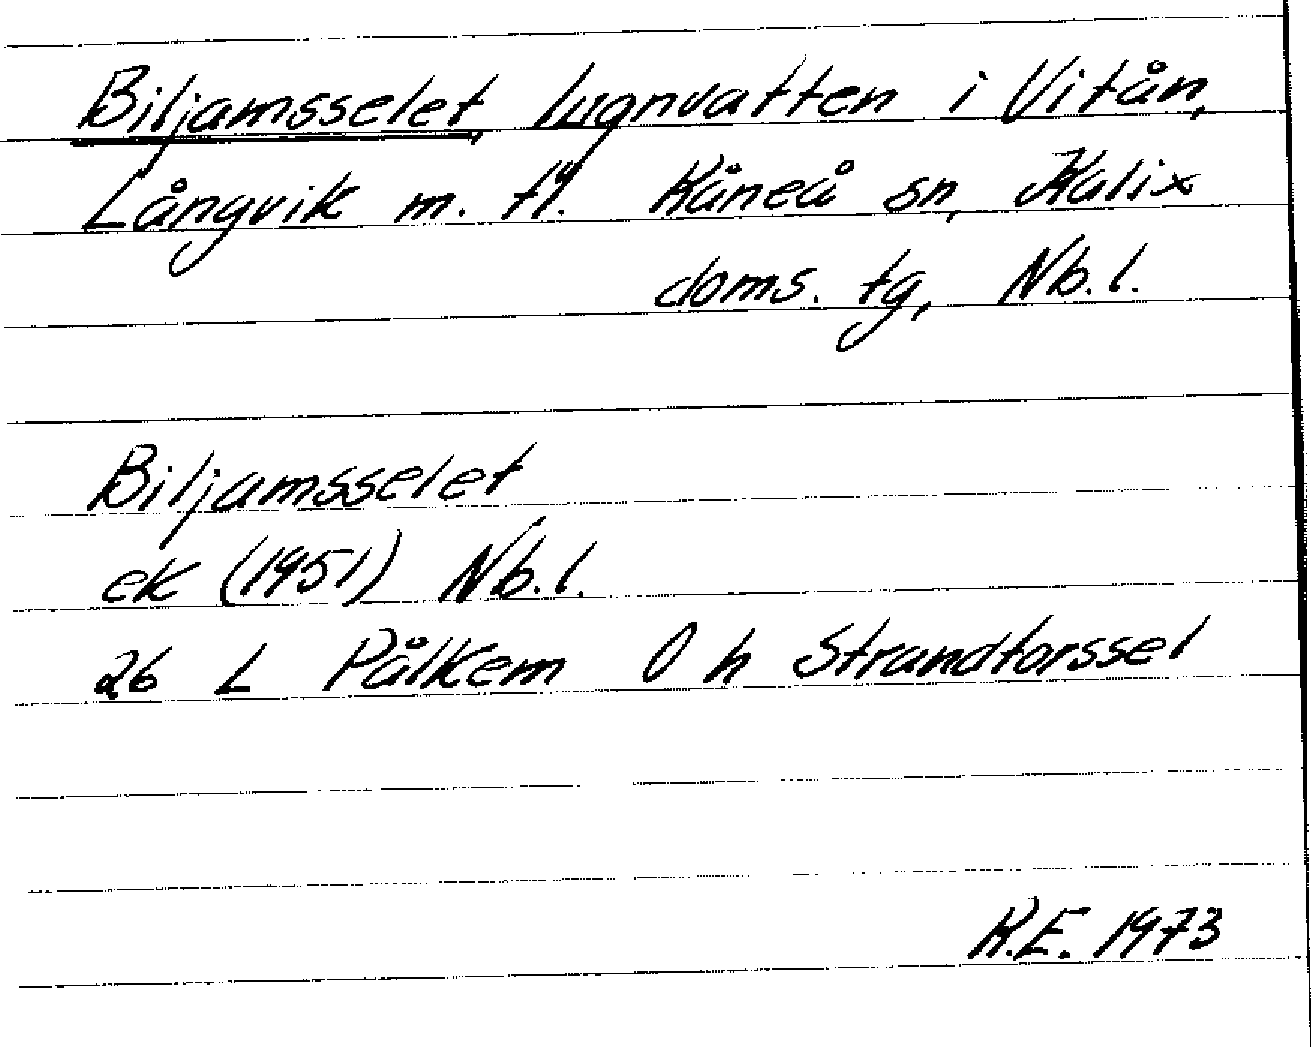 Biljamsselet, lugnvatten i Vitån,
Långvik m. fl. Råneå sn, Kalix
doms. tg, Nb. l.
Biljamsselet
ek (1951) Nb. l.
26 L Pålkem O h Strandforssel
K.E. 1973